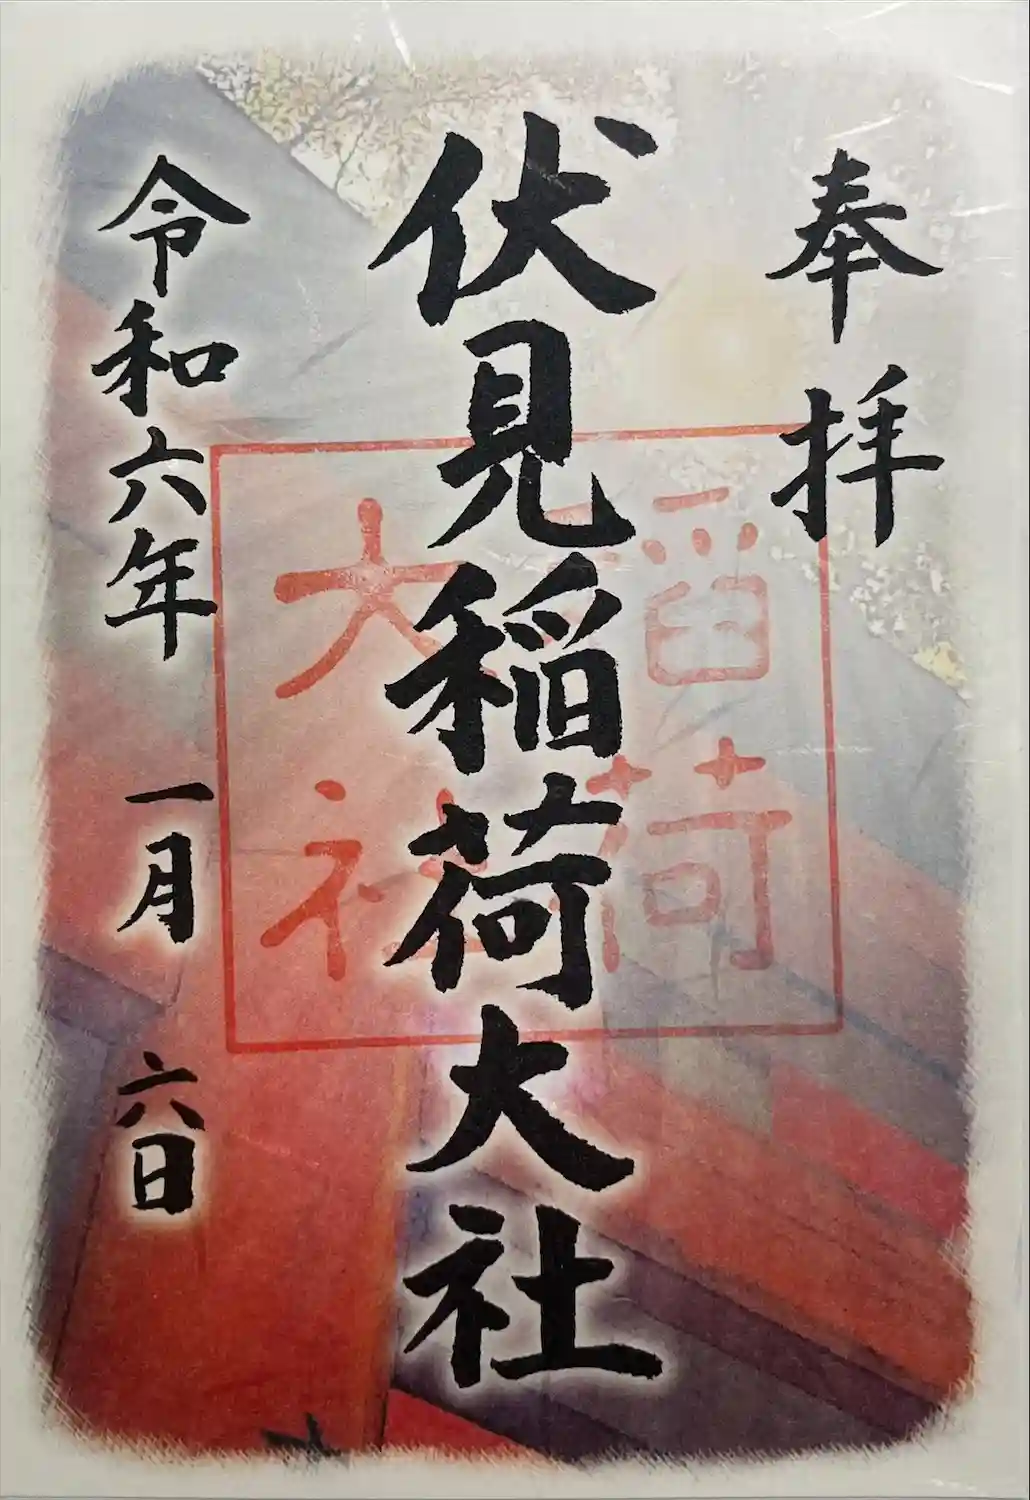 奉拝
伏見稲荷大社
令和六年 一月 六日
稲荷
大社